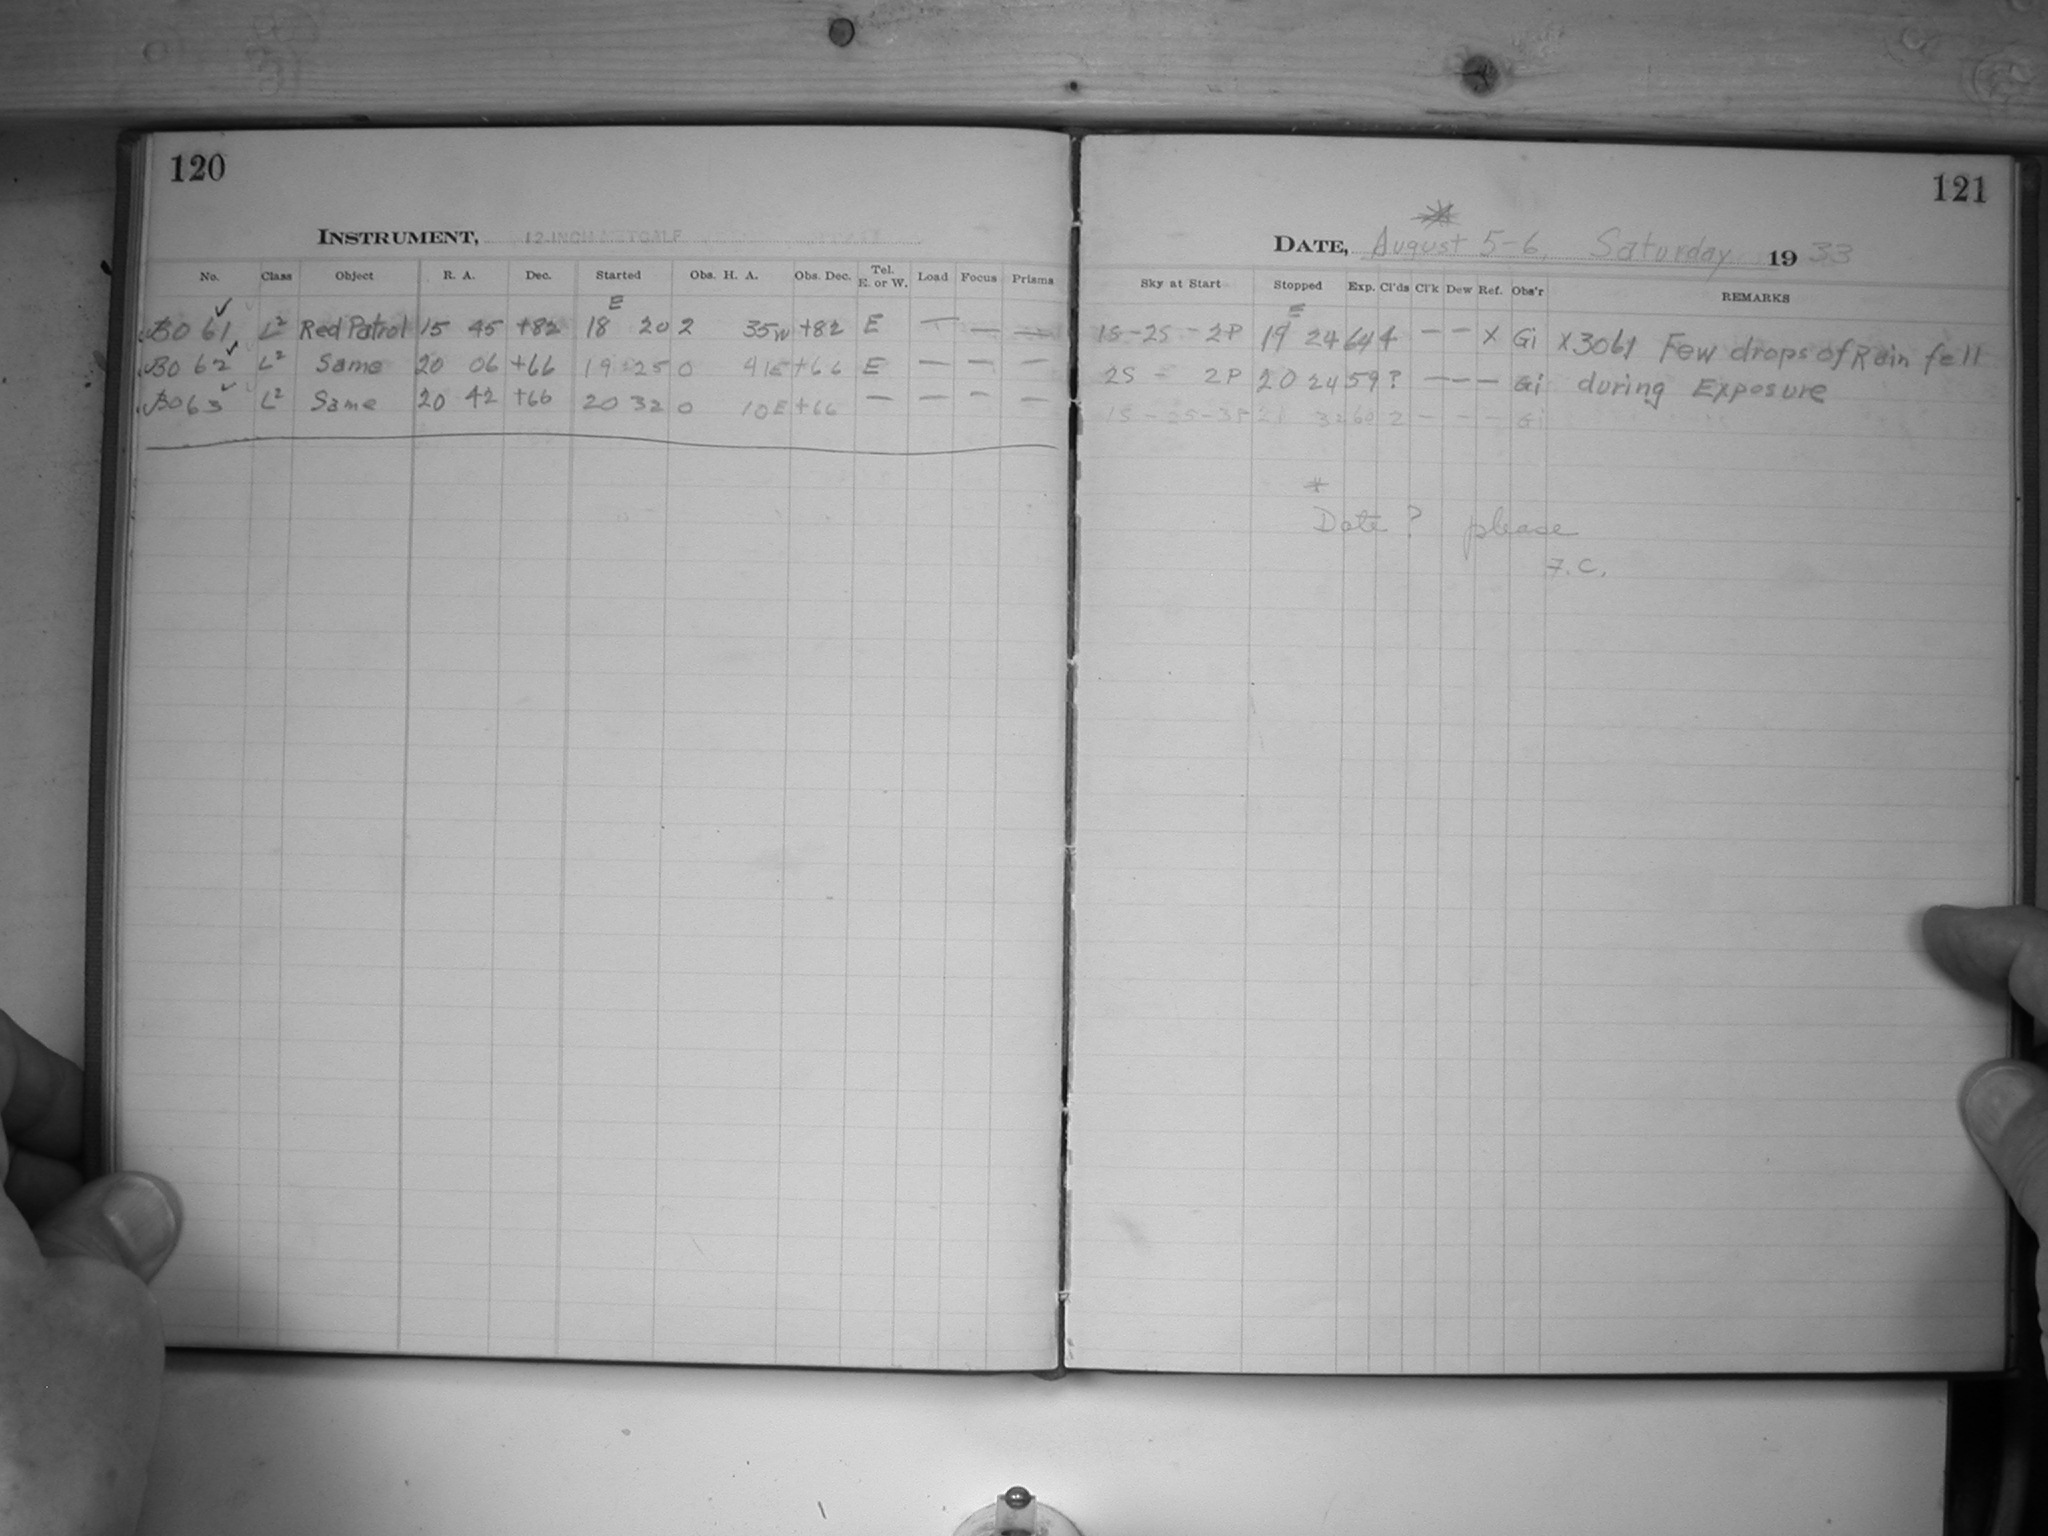 120
INSTRUMENT, 12-INCH METCALF
No. Class Object R. A. Dec. Started Obs. H. A. Obs. Dec. Tel. E. or W. Load Focus Prisms
E
3061 L² Red Patrol 15 45 +82 18 20 2 35W +82 E — — —
3062 L² Same 20 06 +66 19 25 0 41E +66 E — — —
3063 L² Same 20 42 +66 20 32 0 10E +66 — — — —
121
*
DATE, August 5-6, Saturday 1933
Sky at Start Stopped Exp. Cl'ds Cl'k Dew Ref. Obs'r REMARKS
E
1S-2S-2P 19 24 64 4 — — X Gi X3061 Few drops of Rain fell
2S - 2P 20 24 59 ? — — — Gi during Exposure
1S-2S-3P 21 32 60 2 — — — Gi
*
Date? please
F.C.